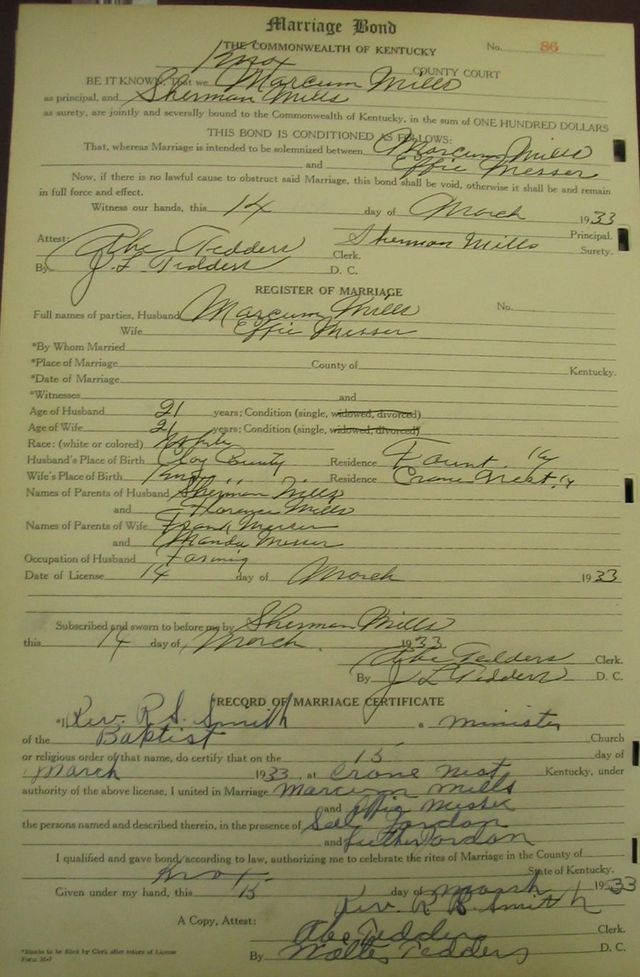 Marriage Bond
THE COMMONWEALTH OF KENTUCKY No. 86
Knox COUNTY COURT
BE IT KNOWN, That we Marcum Mills
as principal, and Sherman Mills
as surety, are jointly and severally bound to the Commonwealth of Kentucky, in the sum of ONE HUNDRED DOLLARS
THIS BOND IS CONDITIONED AS FOLLOWS:
That, whereas Marriage is intended to be solemnized between Marcum Mills
and Effie Messer
Now, if there is no lawful cause to obstruct said Marriage, this bond shall be void, otherwise it shall be and remain
in full force and effect.
Witness our hands, this 14 day of March 1933
Principal.
Attest: Abe Tedders Clerk. Sherman Mills Surety.
By J. L. Tedders D. C.
REGISTER OF MARRIAGE
Full names of parties, Husband Marcum Mills No.
Wife Effie Messer
*By Whom Married
*Place of Marriage County of Kentucky.
*Date of Marriage
*Witnesses and
Age of Husband 21 years; Condition (single, widowed, divorced)
Age of Wife 21 years; Condition (single, widowed, divorced)
Race: (white or colored) White
Husband's Place of Birth Clay County Residence Fount, Ky
Wife's Place of Birth Knox " Residence Crane Nest, Ky
Names of Parents of Husband Sherman Mills
and Florence Mills
Names of Parents of Wife Frank Messer
and Manda Messer
Occupation of Husband Farming
Date of License 14 day of March 1933
Subscribed and sworn to before me by Sherman Mills
this 14 day of March. 1933
Abe Tedders Clerk.
By J L Tedders D. C.
RECORD OF MARRIAGE CERTIFICATE
*I, Rev. R. S. Smith a minister
of the Baptist Church
or religious order of that name, do certify that on the 15 day of
March 1933, at Crane Nest Kentucky, under
authority of the above license, I united in Marriage Marcum Mills
and Effie Messer
the persons named and described therein, in the presence of Jordon
and Luther Jordon
I qualified and gave bond according to law, authorizing me to celebrate the rites of Marriage in the County of
Knox State of Kentucky.
Given under my hand, this 15 day of March 1933
Rev. R. B. Smith
A Copy, Attest: Abe Tedders Clerk.
By Walter Tedders D. C.
*Blanks to be filed by Clerk after return of License